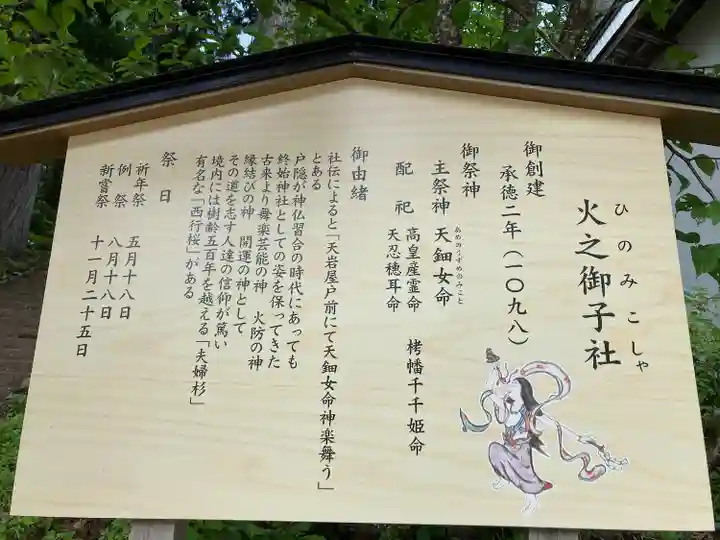 火之御子社
ひのみこしゃ
御創建
承徳二年(一〇九八)
御祭神
主祭神 天鈿女命
あめのうずめのみこと
配祀 高皇産霊命 栲幡千千姫命
天忍穂耳命
御由緒
社伝によると「天岩屋戸前にて天鈿女命神楽舞う」
とある
戸隠が神仏習合の時代にあっても
終始神社としての姿を保ってきた
古来より舞楽芸能の神 火防の神
縁結びの神 開運の神として
その道を志す人達の信仰が篤い
境内には樹齢五百年を越える「夫婦杉」
有名な「西行桜」がある
祭日
祈年祭 五月十八日
例祭 八月十八日
新嘗祭 十一月二十五日